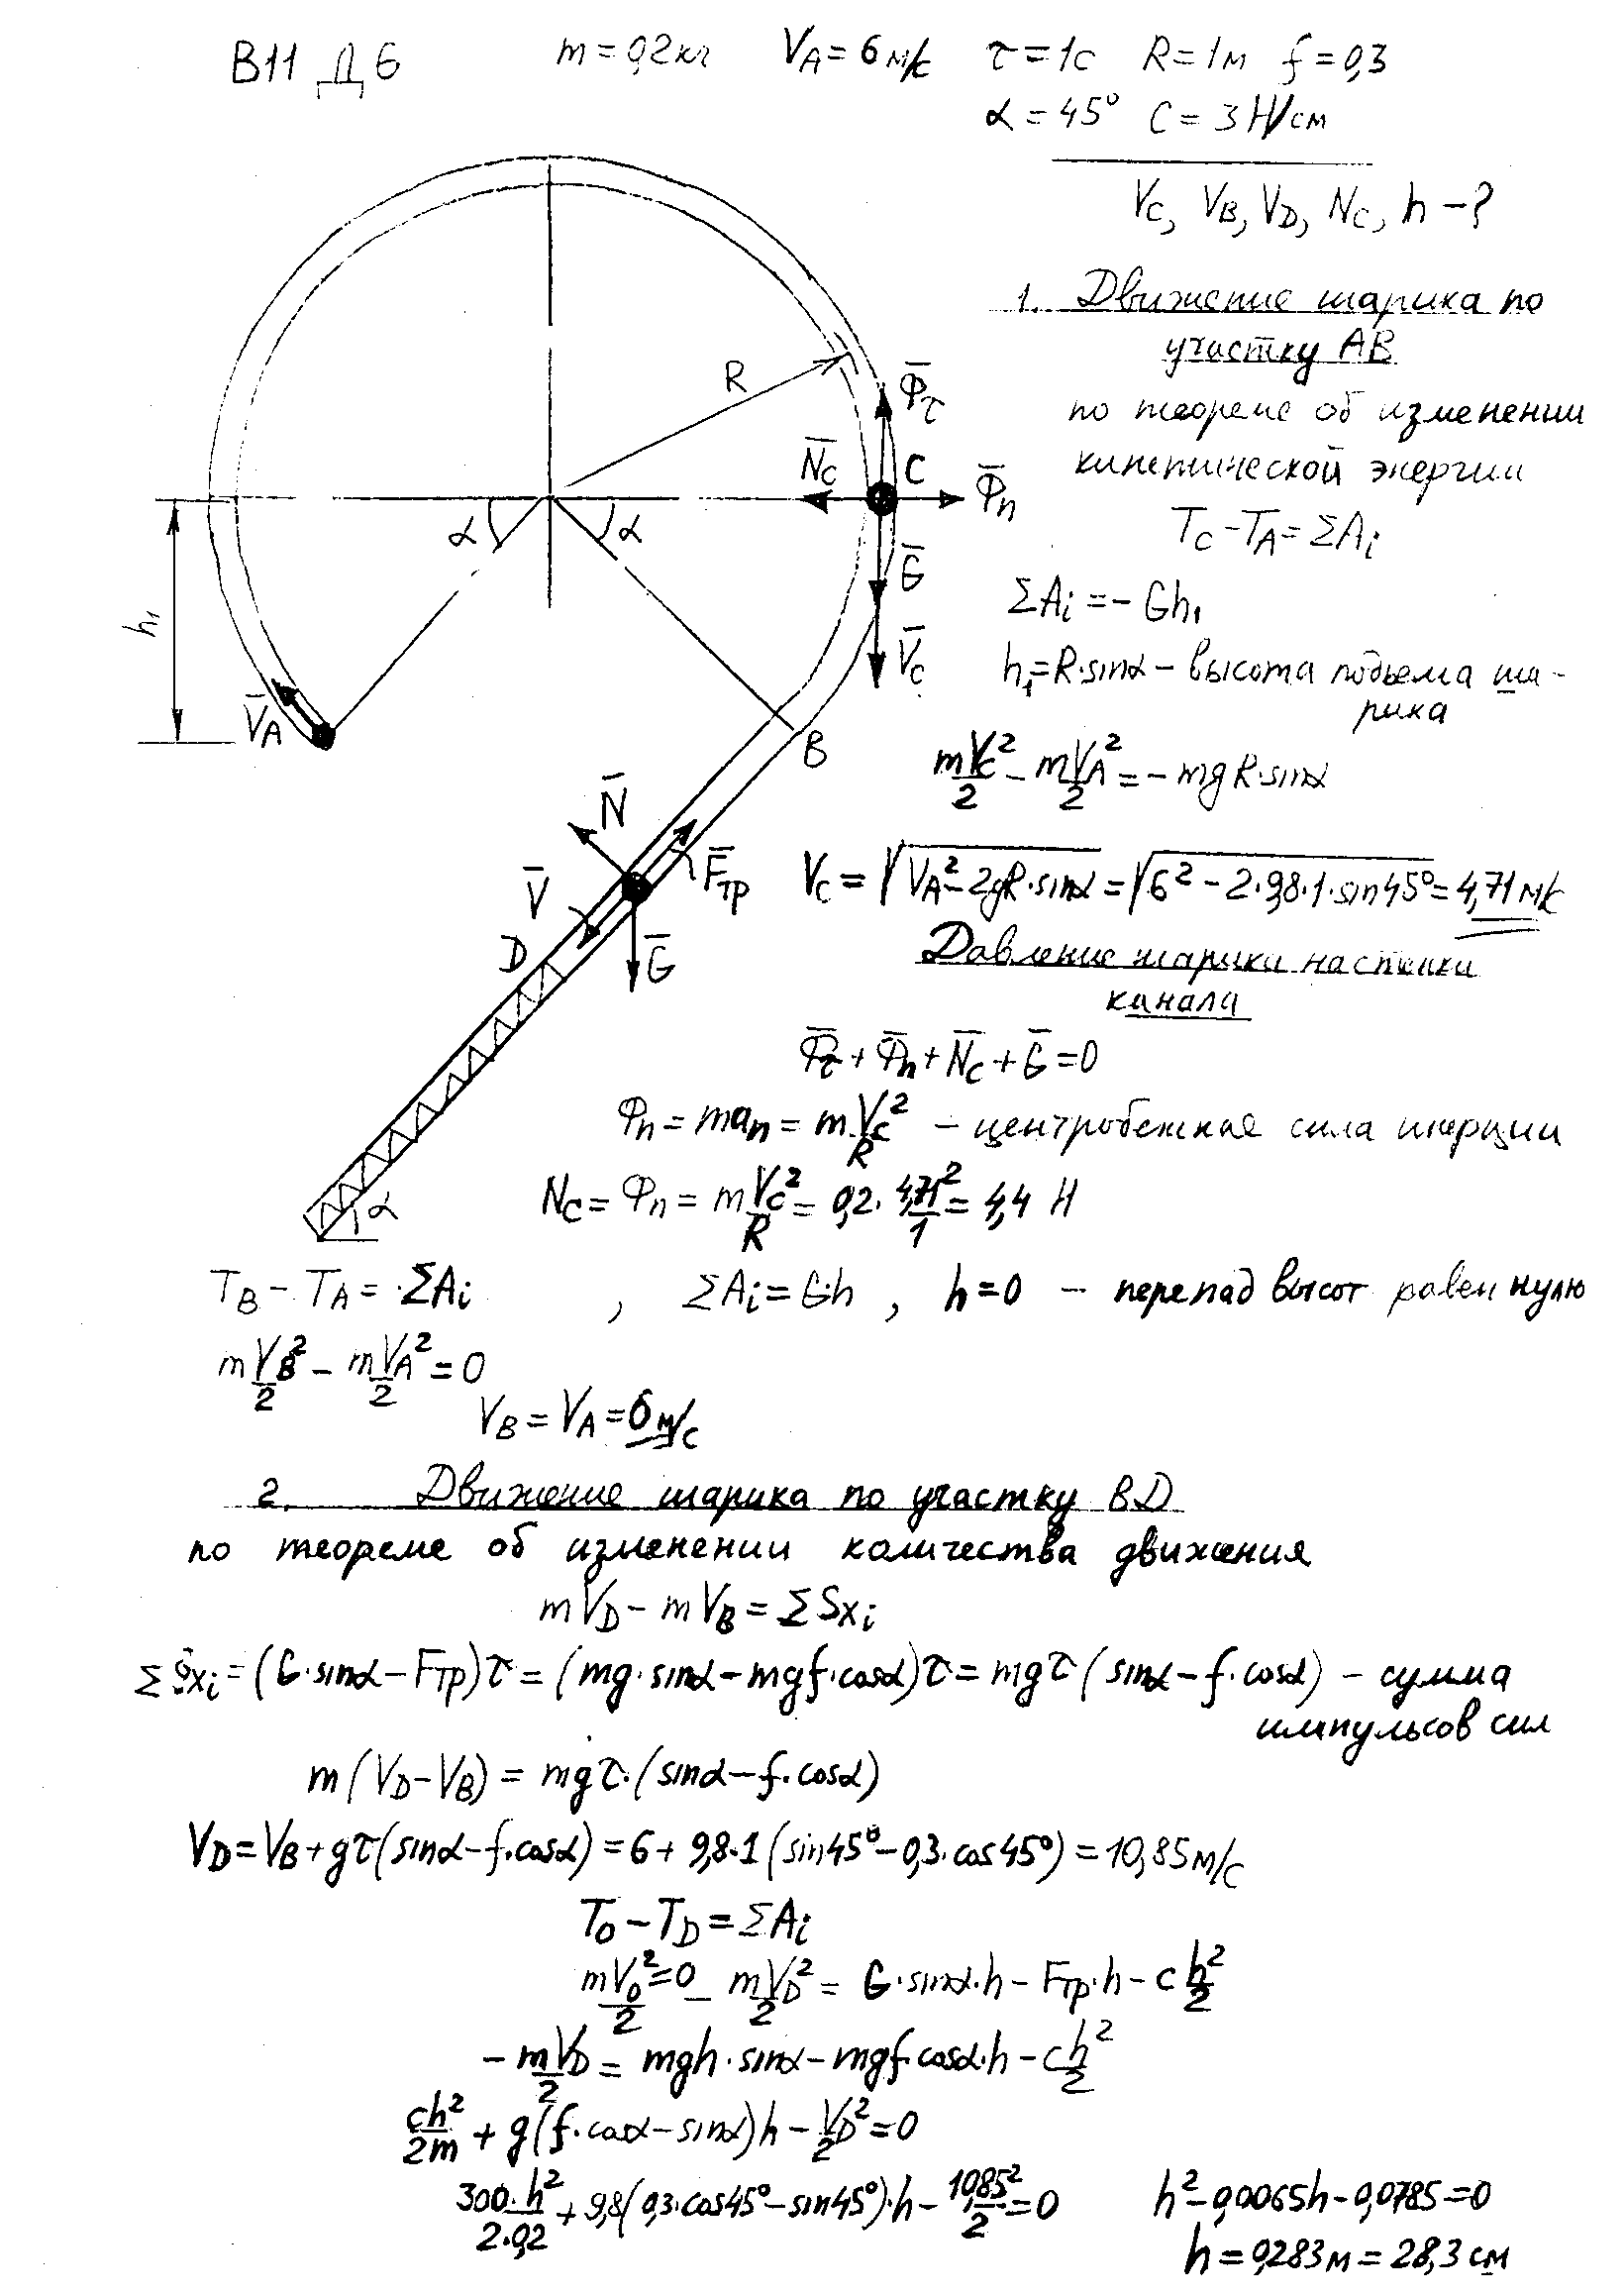 В11 Д6 m = 0,2 кг V_A = 6 м/с τ = 1с R = 1м f = 0,3
α = 45° C = 3 Н/см
V_C, V_B, V_D, N_C, h – ?
1. Движение шарика по
участку АВ
по теореме об изменении
кинетической энергии
T_C – T_A = ΣA_i
ΣA_i = – Gh_1
h_1 = R·sinα – высота подъема ша-
рика
mV_C²/2 – mV_A²/2 = – mgR·sinα
V_C = √(V_A² – 2gR·sinα) = √(6² – 2·9,8·1·sin45°) = 4,71 м/с
Давление шарика на стенки
канала
Φ̅_τ + Φ̅_n + N̅_C + G̅ = 0
Φ_n = ma_n = mV_C²/R – центробежная сила инерции
N_C = Φ_n = mV_C²/R = 0,2·4,71²/1 = 4,4 Н
R
Φ̅_τ
N̅_C C Φ̅_n
α α
G̅
h_1
V̅_C
V̅_A
B
N̅
F̅_тр
V̅
D
G̅
α
T_B – T_A = ΣA_i , ΣA_i = Gh , h = 0 – перепад высот равен нулю
mV_B²/2 – mV_A²/2 = 0
V_B = V_A = 6 м/с
2. Движение шарика по участку BD
по теореме об изменении количества движения
mV_D – mV_B = ΣSx_i
ΣSx_i = (G·sinα – F_тр)τ = (mg·sinα – mgf·cosα)τ = mgτ(sinα – f·cosα) – сумма
импульсов сил
m(V_D – V_B) = mgτ·(sinα – f·cosα)
V_D = V_B + gτ(sinα – f·cosα) = 6 + 9,8·1(sin45° – 0,3·cos45°) = 10,85 м/с
T_0 – T_D = ΣA_i
mV_0²/2 = 0 – mV_D²/2 = G·sinα·h – F_тр·h – c h²/2
– mV_D/2 = mgh·sinα – mgf·cosα·h – c h²/2
ch²/2m + g(f·cosα – sinα)h – V_D²/2 = 0
300·h²/2·0,2 + 9,8(0,3·cos45° – sin45°)·h – 10,85²/2 = 0 h² – 0,0065h – 0,0785 = 0
h = 0,283 м = 28,3 см